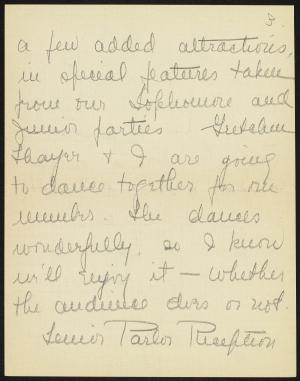 3.
a few added attractions,
in special features taken
from our Sophomore and
Junior parties Gretchen
Thayer & I are going
to dance together for one
number. She dances
wonderfully, so I know
we'll enjoy it — whether
the audience does or not.
Senior Parlor Reception